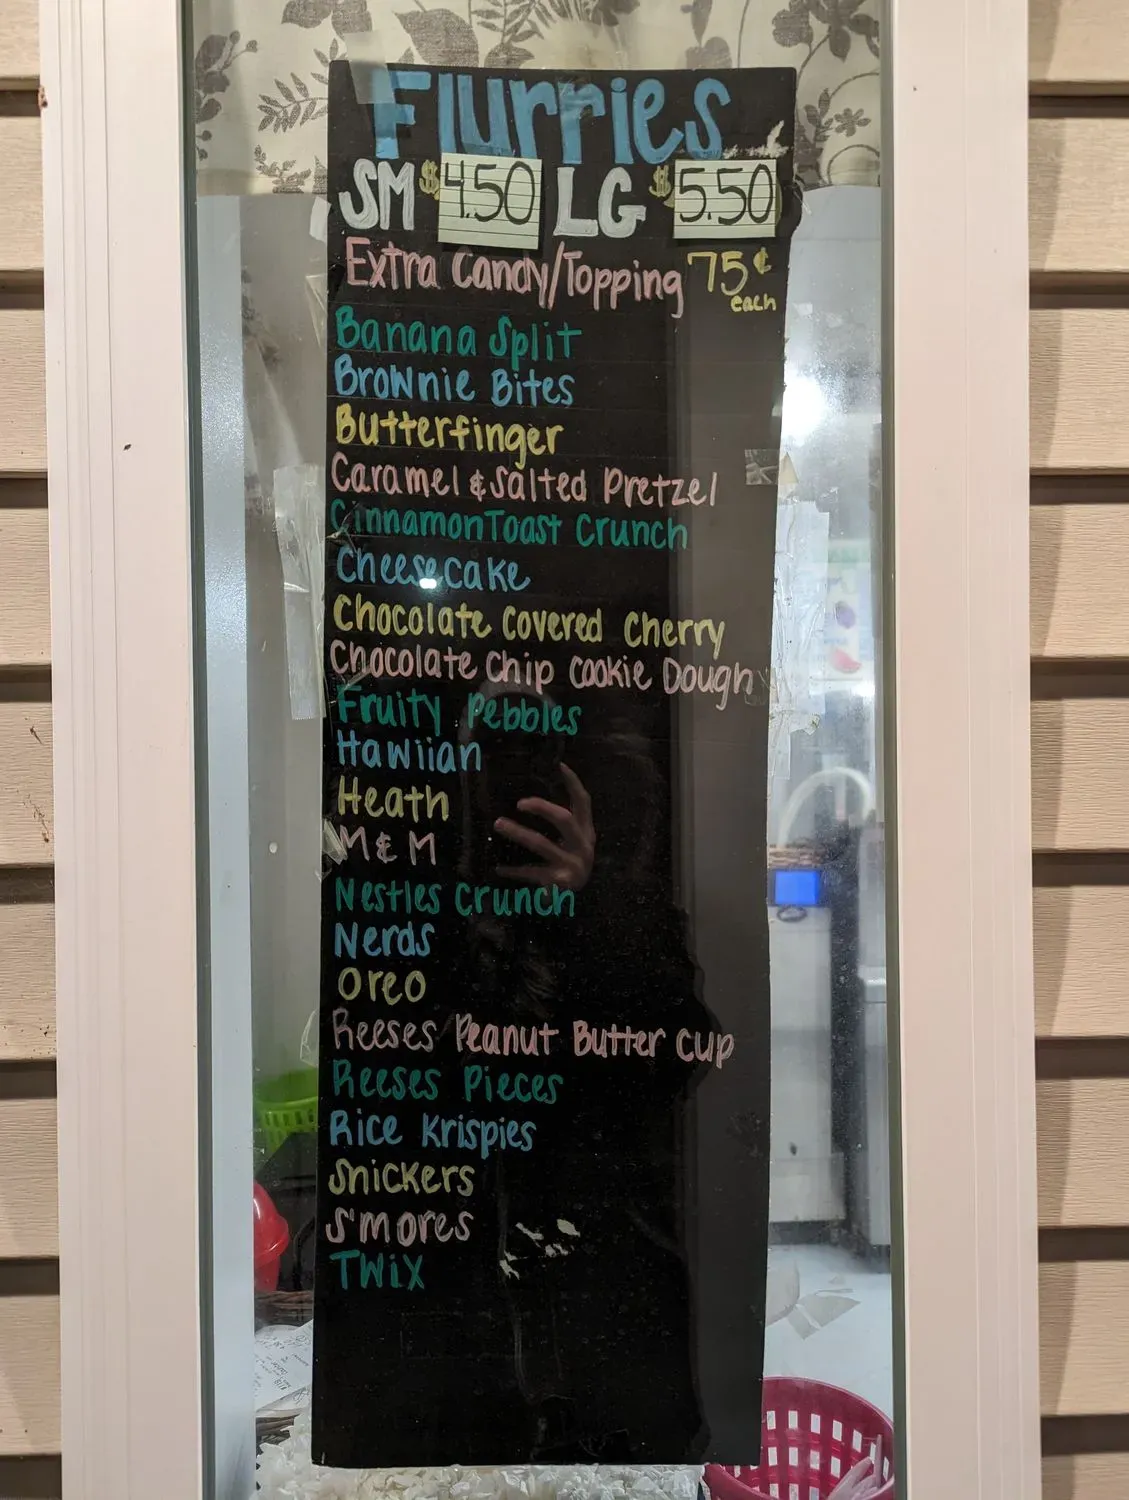 Flurries
SM $4.50 LG $5.50
Extra Candy/Topping 75¢ each
Banana Split
Brownie Bites
Butterfinger
Caramel & Salted Pretzel
Cinnamon Toast Crunch
Cheesecake
Chocolate Covered Cherry
Chocolate Chip Cookie Dough
Fruity Pebbles
Hawiian
Heath
M & M
Nestles Crunch
Nerds
Oreo
Reeses Peanut Butter Cup
Reeses Pieces
Rice Krispies
Snickers
S'mores
Twix